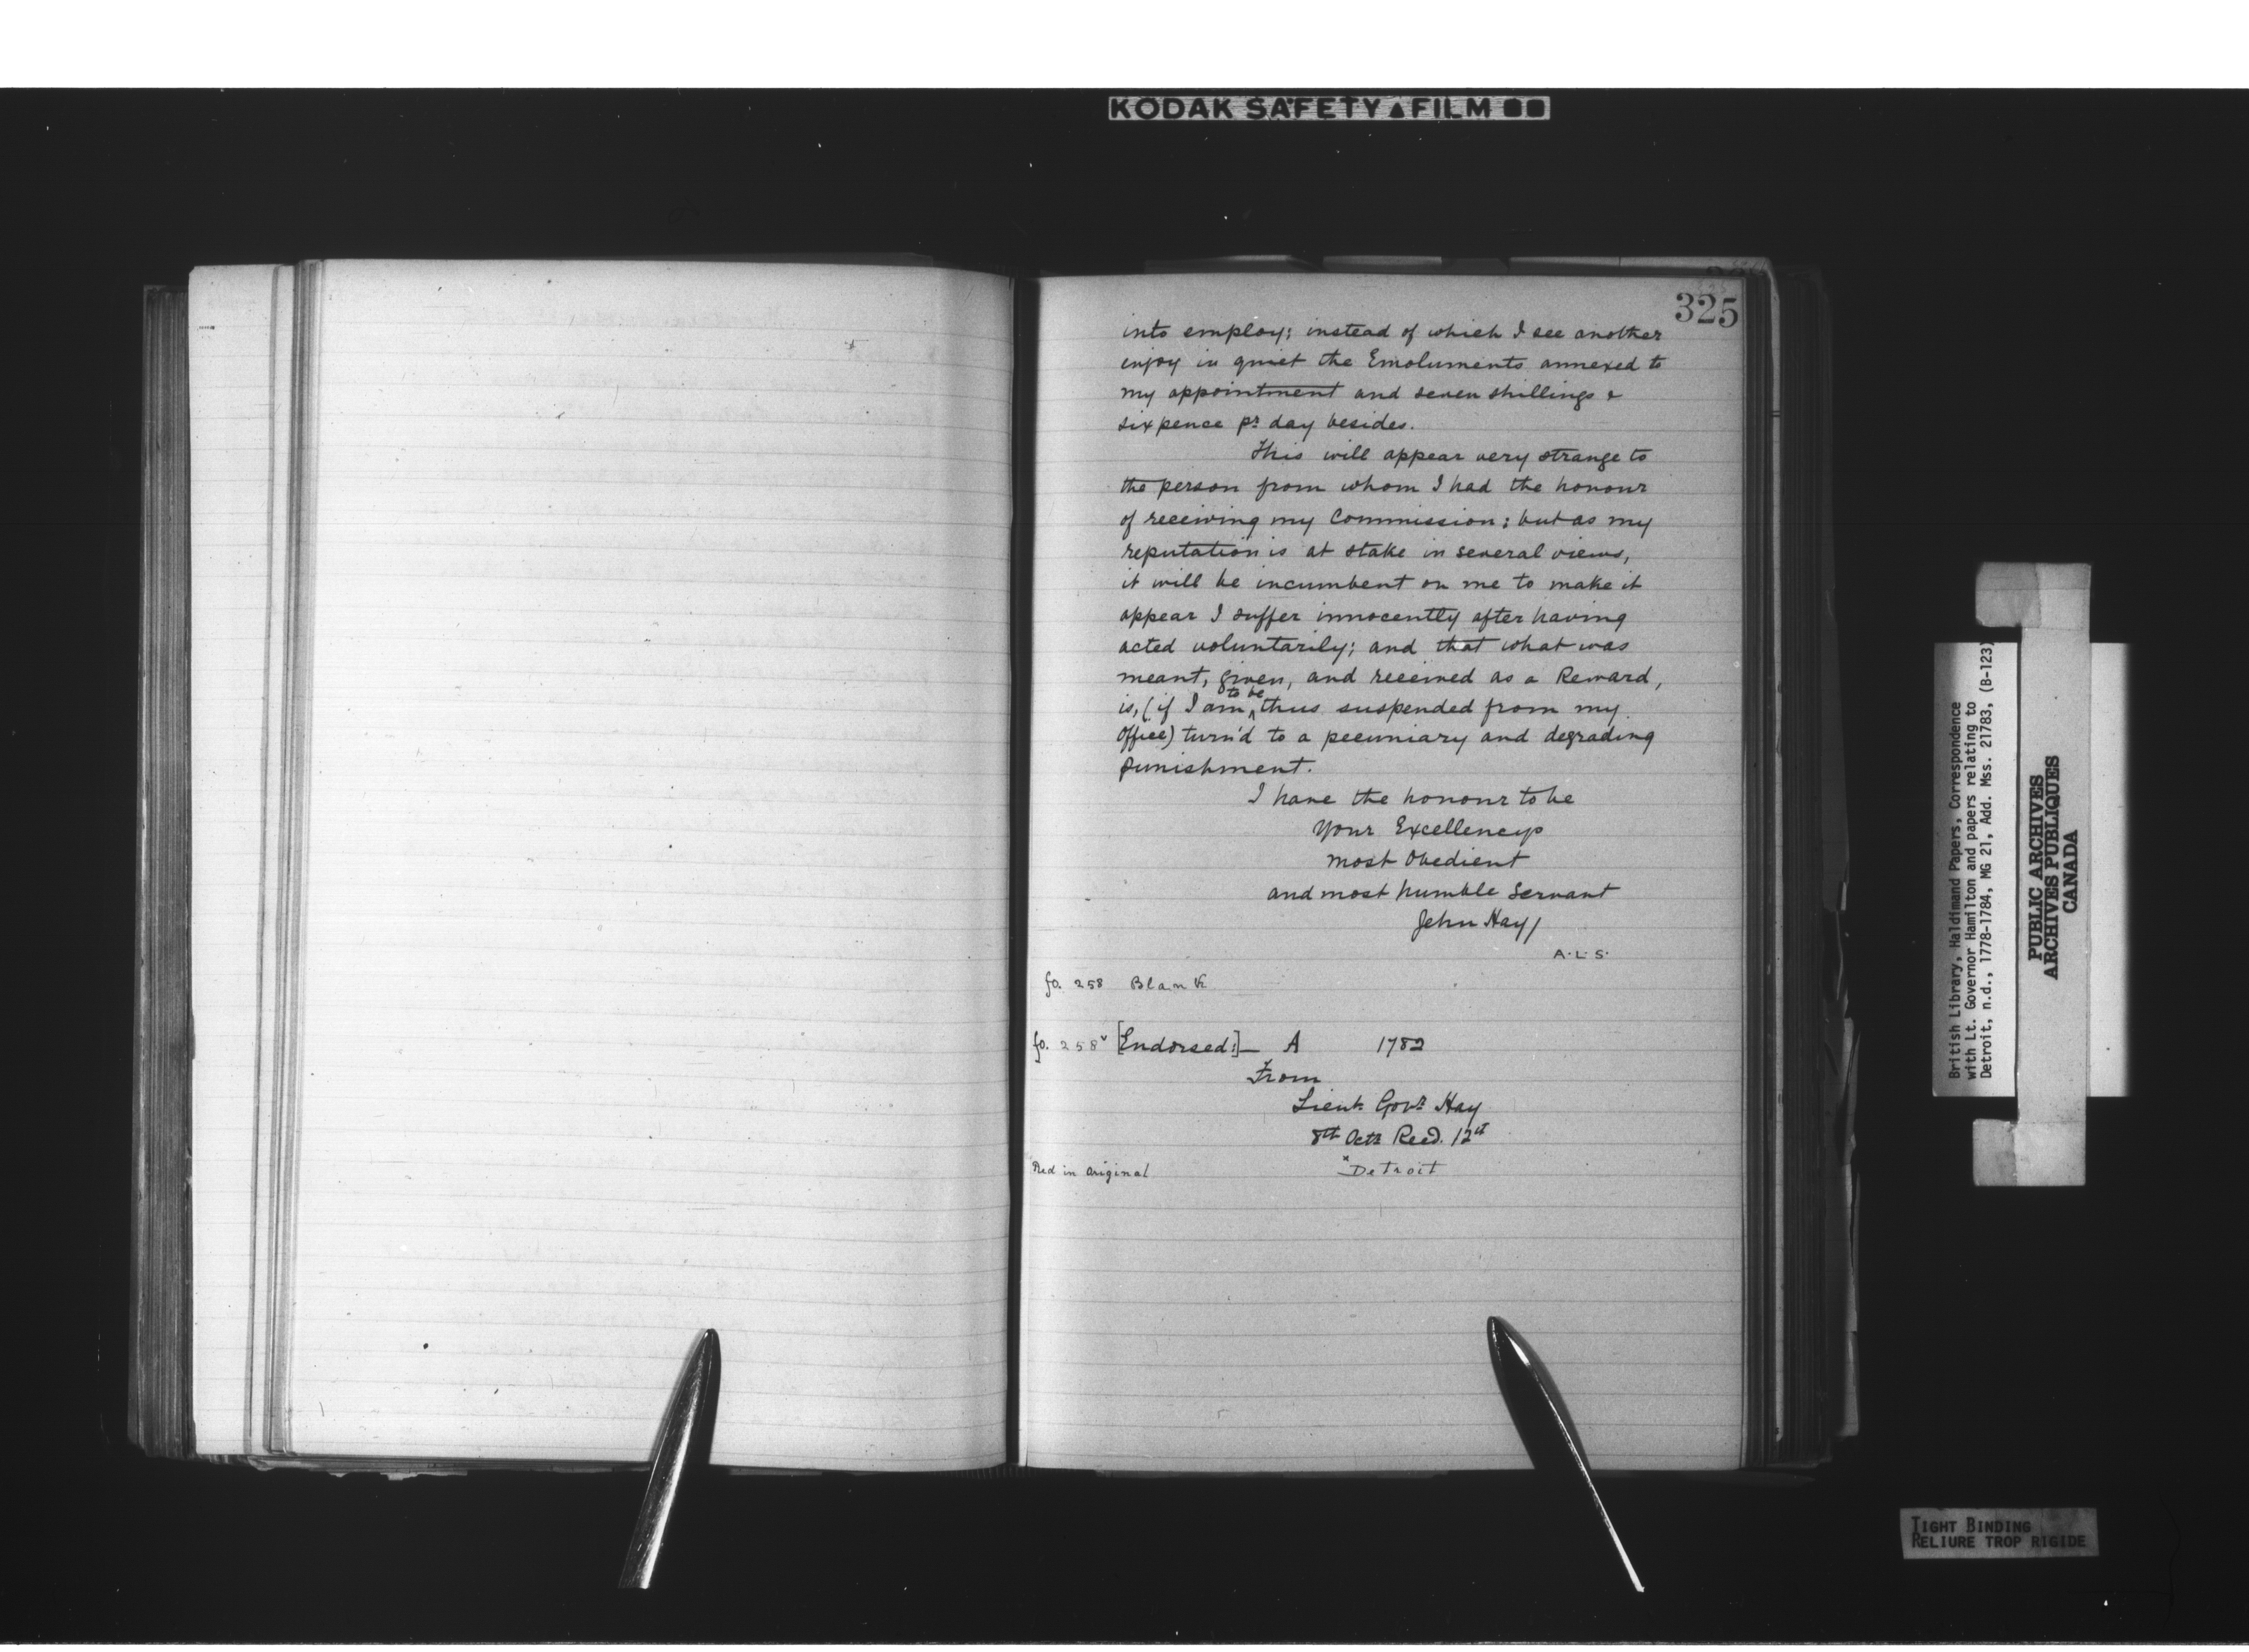 KODAK SAFETY FILM
325
into employ; instead of which I see another
enjoy in quiet the Emoluments annexed to
my appointment and seven shillings &
sixpence pr. day besides.
This will appear very strange to
the person from whom I had the honour
of receiving my Commission; but as my
reputation is at stake in several views,
it will be incumbent on me to make it
appear I suffer innocently after having
acted voluntarily; and that what was
meant, given, and received as a Reward,
is, (if I am to be thus suspended from my
Office) turn'd to a pecuniary and degrading
punishment.
I have the honour to be
Your Excellencys
most Obedient
and most humble Servant
John Hay/
A.L.S.
fo. 258 Blank
fo. 258v [Endorsed:]— A 1782
From
Lieut. Govr. Hay
8th Octr. Recd. 12th
Red in original *Detroit
British Library, Haldimand Papers, Correspondence
with Lt. Governor Hamilton and papers relating to
Detroit, n.d., 1778-1784, MG 21, Add. Mss. 21783, (B-123)
PUBLIC ARCHIVES
ARCHIVES PUBLIQUES
CANADA
TIGHT BINDING
RELIURE TROP RIGIDE